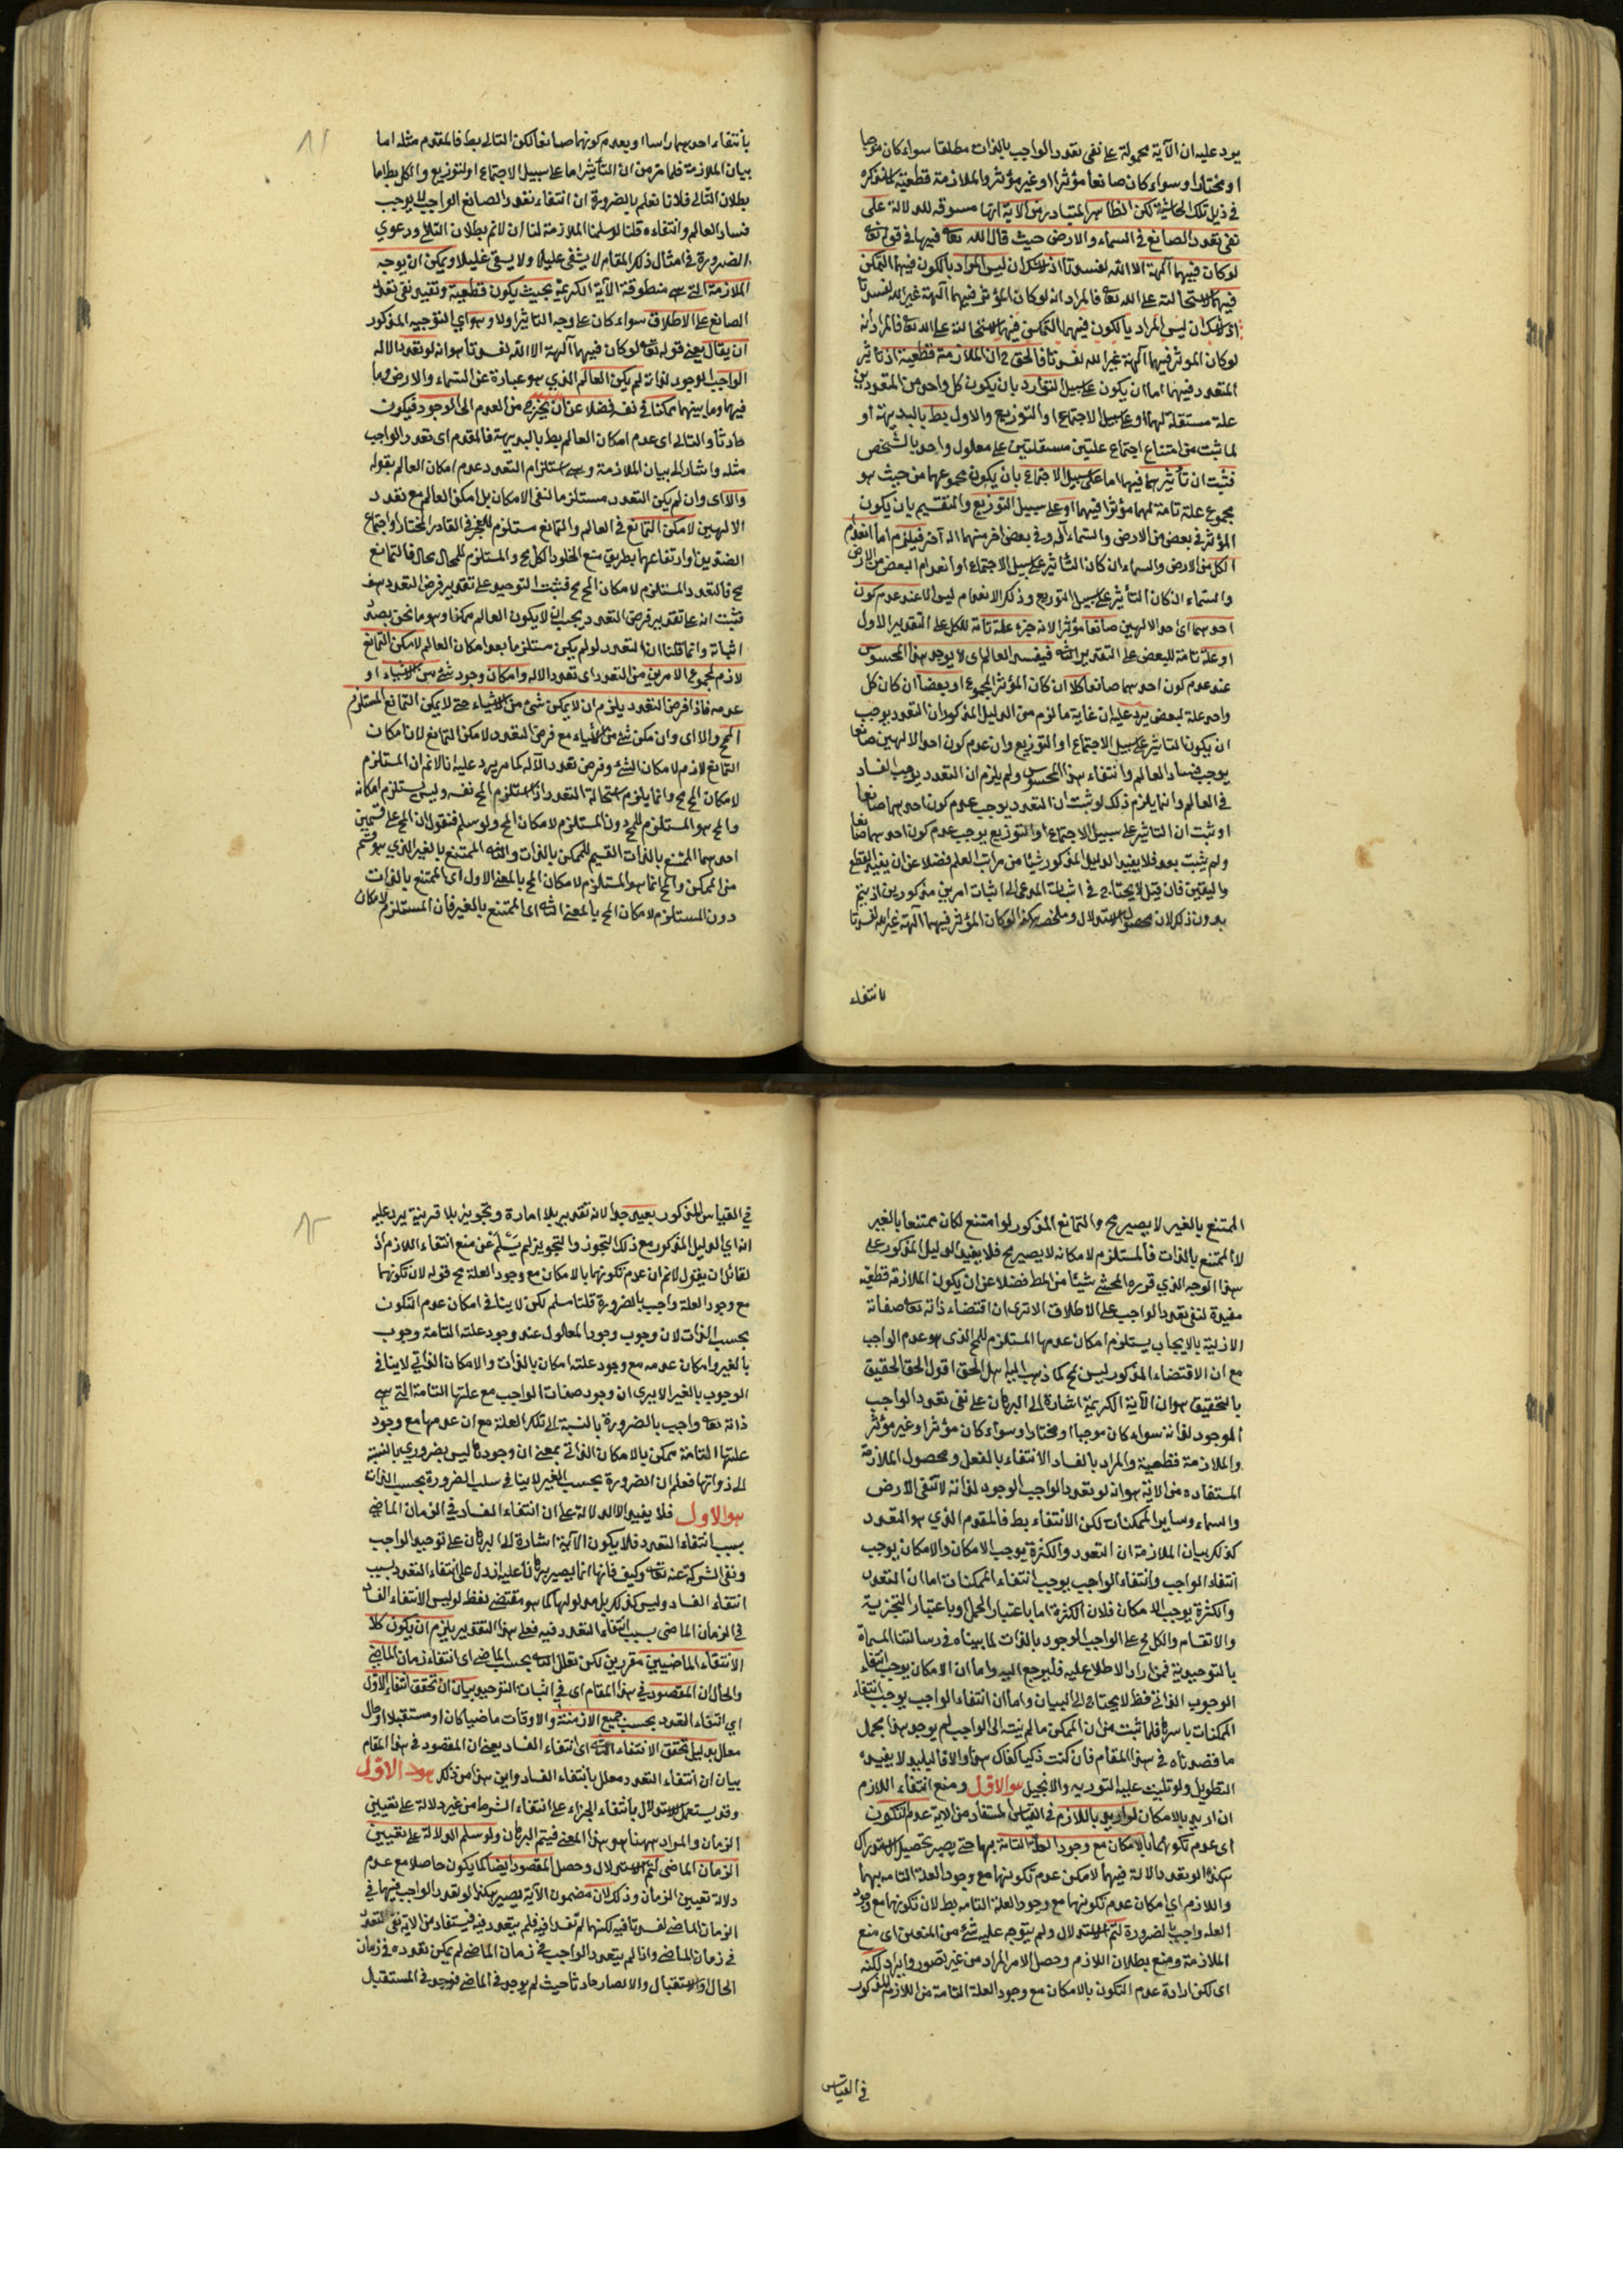 يرد عليه ان الآية محمولة على نفى تعدد الواجب بالذات مطلقا سواء كان موجبا
او مختارا وسواء كان صانعا مؤثرا او غير مؤثر والملازمة قطعية كما ذكره
في ذيل تلك الحاشية لكن الظاهر المتبادر من الآية انها مسوقة للدلالة على
نفى تعدد الصانع في السماء والارض حيث قال الله تعا فيها في قوله تعا
لو كان فيهما آلهة الا الله لفسدتا اذ لا شك ان ليس المراد بالكون فيهما التمكن
فيهما لاستحالته على الله تعا فالمراد انه لو كان المؤثر فيهما آلهة غير الله لفسدتا
اذ لا شك ان ليس المراد بالكون فيهما التمكن فيهما لاستحالته على الله تعا فالمراد انه
لو كان المؤثر فيهما آلهة غير الله لفسدتا فالحق ح ان الملازمة قطعية اذ تأثير
المتعدد فيهما اما ان يكون على سبيل التوارد بان يكون كل واحد من المتعددين
علة مستقلة لهما او على سبيل الاجتماع او التوزيع والاول بط بالبديهة او
لما ثبت من امتناع اجتماع علتين مستقلتين على معلول واحد بالشخص
فثبت ان تأثيرهما فيهما اما على سبيل الاجتماع بان يكون مجموعهما من حيث هو
مجموع علة تامة لهما مؤثرا فيهما او على سبيل التوزيع والتقسيم بان يكون
المؤثر في بعض من الارض والسماء آله وفي بعض آخر منهما اله آخر فيلزم اما انعدام
الكل من الارض والسماء ان كان التأثير على سبيل الاجتماع او انعدام البعض من الارض
والسماء ان كان التأثير على سبيل التوزيع وذلك الانعدام ليس الا عند عدم كون
احدهما اى احد الالهين صانعا مؤثرا لانه جزء علة تامة للكل على التقدير الاول
او علة تامة للبعض على التقدير الثه فيفسد العالم اى لا يوجد هذا المحسوس
عند عدم كون احدهما صانعا كلا ان كان المؤثر المجموع او بعضا ان كان كل
واحد علة لبعض يرد عليه ان غاية ما لزم من الدليل المذكور ان التعدد يوجب
ان يكون التأثير على سبيل الاجتماع او التوزيع وان عدم كون احد الالهين صانعا
يوجب فساد العالم وانتفاء هذا المحسوس ولم يلزم ان التعدد يوجب الفساد
في العالم وانما يلزم ذلك لو ثبت ان التعدد يوجب عدم كون احدهما صانعا
او ثبت ان التأثير على سبيل الاجتماع او التوزيع يوجب عدم كون احدهما صانعا
ولم يثبت بعد فلا يفيد الدليل المذكور شيئا من مراتب العلم فضلا عن ان يفيد القطع
واليقين فان قيل لا يحتاج في اثبات المدعى الى اثبات امرين مذكورين اذ يتم
بدون ذلك لان محصول الاستدلال وملخصه هكذا لو كان المؤثر فيهما آلهة غير الله لفسدتا
لانتفاء
بانتفاء احدهما راسا او بعدم كونهما صانعا لكن التالى بط فالمقدم مثله اما
بيان الملازمة فلما مر من ان التأثير اما على سبيل الاجتماع او التوزيع والكل بط اما
بطلان التالى فلانا نعلم بالضرورة ان انتفاء تعدد الصانع الواجب لا يوجب
فساد العالم وانتفاءه قلنا لو سلمنا الملازمة لنا ان لا نم بطلان التالى ودعوى
الضرورة في امثال ذلك المقام لا يشفى عليلا ولا يسقى غليلا ويمكن ان يوجه
الملازمة التى هى منطوقة الآية الكريمة بحيث يكون قطعية وتفيد نفى تعدد
الصانع على الاطلاق سواء كان على وجه التاثير اولا وهو اي التوجيه المذكور
ان يقال يعنى قوله تعا لو كان فيهما آلهة الا الله لفسدتا هو انه لو تعدد الاله
الواجب الوجود لذاته لم يكن العالم الذي هو عبارة عن السماء والارض وما
فيهما وما بينهما ممكنا في نفسه فضلا عن ان يخرج من العدم الى الوجود فيكون
حادثا والتالى اى عدم امكان العالم بط بالبديهة فالمقدم اى تعدد الواجب
مثله واشار الى بيان الملازمة وهى استلزام التعدد عدم امكان العالم بقوله
والا اى وان لم يكن التعدد مستلزما لنفى الامكان بل امكن العالم مع تعدد
الالهين لامكن التمانع في العالم والتمانع مستلزم للعجز في القادر المختار او اجتماع
الضدين او ارتفاعهما بطريق منع الخلو والكل مح والمستلزم للمحال محال فالتمانع
مح فالتعدد المستلزم لامكان المح مح فثبت التوحيد على تقدير فرض التعدد هف
فثبت انه على تقدير فرض التعدد يجب ان لا يكون العالم ممكنا وهو ما نحن بصدد
اثباته وانما قلنا ان التعدد لو لم يكن مستلزما بعدم امكان العالم لامكن التمانع
لازم لمجموع الامرين من التعدد اى تعدد الاله وامكان وجود شئ من الاشياء او
عدمه فاذا فرض التعدد يلزم ان لا يمكن شئ من الاشياء حتى لا يمكن التمانع المستلزم
المح والا اى وان مكن شئ من الاشياء مع فرض التعدد لامكن التمانع لان امكان
التمانع لازم لامكان الشئ وفرض تعدد الآله كما مر يرد عليه انا لا نم ان المستلزم
لامكان المح مح وانما يلزم استحالة التعدد اذا استلزم المح نفسه وليس يستلزم امكانه
والمح هو المستلزم للمح دون المستلزم لامكان المح ولو سلم فنقول ان المح على قسمين
احدهما الممتنع بالذات القسيم للممكن بالذات والثه الممتنع بالغير الذي هو قسم
من الممكن والمح انما هو المستلزم لامكان المح بالمعنى الاول اى الممتنع بالذات
دون المستلزم لامكان المح بالمعنى الثه اى الممتنع بالغير فان المستلزم لامكان
الممتنع بالغير لا يصير مح والتمانع المذكور لو امتنع لكان ممتنعا بالغير
لا الممتنع بالذات فالمستلزم لامكانه لا يصير مح فلا يفيد الدليل المذكور على
هذا الوجه الذي قرره المحشى شيئا من المط فضلا عن ان يكون الملازمة قطعية
مفيدة لنفى تعدد الواجب على الاطلاق الا ترى ان اقتضاء ذاته تعا صفاته
الازلية بالايجاب يستلزم امكان عدمها المستلزم للمح الذى هو عدم الواجب
مع ان الاقتضاء المذكور ليس بمح كما ذهب اليه اهل الحق اقول الحق الحقيق
بالتحقيق هو ان الآية الكريمة اشارة الى البرهان على نفى تعدد الواجب
الموجود لذاته سواء كان موجبا او مختارا وسواء كان مؤثرا او غير مؤثر
والملازمة قطعية والمراد بالفساد الانتفاء بالفعل ومحصول الملازمة
المستفاده من الاية هو انه لو تعدد الواجب الوجود لذاته لانتفى الارض
والسماء وساير الممكنات لكن الانتفاء بط فالمقدم الذي هو التعدد
كذلك بيان الملازمة ان التعدد والكثرة يوجب الامكان والامكان يوجب
انتفاء الواجب وانتفاء الواجب يوجب انتفاء الممكنات اما ان التعدد
والكثرة يوجب الامكان فلان الكثرة اما باعتبار الحمل او باعتبار التجزية
والانقسام والكل مح على الواجب الوجود بالذات لما بيناه في رسالتنا المسماة
بالتوحيدية فمن اراد الاطلاع عليه فليرجع اليه واما ان الامكان يوجب انتفاء
الوجوب الذاتى فظ لا يحتاج الى البيان واما ان انتفاء الواجب يوجب انتفاء
الممكنات باسرها فلما ثبت من ان الممكن ما لم ينته الى الواجب لم يوجد هذا مجمل
ما قصدناه في هذا المقام فان كنت ذكيا كفاك هذا والا فالبليد لا يفيده
التطويل ولو تليت عليه التوريه والانجيل هو الاول ومنع انتفاء اللازم
ان اريد بالامكان لو اريد باللازم في القياس المستفاد من الاية عدم التكون
اى عدم تكونهما بالامكان مع وجود العلة التامة بهما حتى يصير تحصيل الاستدراك
هكذا لو تعدد الالة فيهما لامكن عدم تكونهما مع وجود العلة التامه بهما
واللازم اى امكان عدم تكونهما مع وجود العلة التامه بط لان تكونهما مع وجود
العله واجب بالضرورة لتم الاستدلال ولم يتوجه عليه شئ من المنعين اى منع
الملازمة ومنع بطلان اللازم وحصل الامر المراد من غير تصور وايراد لكنه
اى لكن ارادة عدم التكون بالامكان مع وجود العلة التامة من اللازم المذكور
في القياس
في القياس المذكور بعيد جدا لانه تقدير بلا امارة وتجويز بلا قرينة يرد عليه
انه اي الدليل المذكور مع ذلك التجوز والتجويز لم يَسْلَم عن منع انتفاء اللازم اذ
لقائل ان يقول لا نم ان عدم تكونهما بالامكان مع وجود العلة مح قوله لان تكونهما
مع وجود العلة واجب بالضرورة قلنا مسلم لكن لا ينافى امكان عدم التكون
بحسب الذات لان وجوب وجود المعلول عند وجود علته التامة وجوب
بالغير وامكان عدمه مع وجود علته امكان بالذات والامكان الذاتي لا ينافى
الوجوب بالغير الا يرى ان وجود صفات الواجب مع علتها التامة التى هى
ذاته تعا واجب بالضرورة بالنسبة الى تلك العلة مع ان عدمها مع وجود
علتها التامة ممكن بالامكان الذاتى بمعنى ان وجودها ليس بضروري بالنسبة
الى ذواتها فعلم ان الضرورة بحسب الغير لا ينافى سلب الضرورة بحسب الذات
هو الاول فلا يفيد الا الدلالة على ان انتفاء الفساد في الزمان الماضى
بسبب انتفاء التعدد فلا يكون الآية اشارة الى البرهان على توحيد الواجب
ونفى الشركة عنه تعا وكيف فانها انما يصير برهانا عليه ان دل على انتفاء التعدد بسبب
انتفاء الفساد وليس كذلك بل مدلولها كما هو مقتضى لفظ لو ليس الا انتفاء الفساد
في الزمان الماضى بسبب انتفاء التعدد فيه فعلى هذا التقدير يلزم ان يكون كلا
الانتفاء الماضيين مقررين لكن تعلل الثه بحسب الماضى اى انتفاء زمان الماضى
والحال ان المقصود في هذا المقام اى في اثبات التوحيد بيان ان تحقق انتفاء الاول
اي انتفاء التعدد بحسب جميع الازمنة والاوقات ماضيا كان او مستقبلا او حال
معلل بدليل تحقق الانتفاء الثه اى انتفاء الفساد يعنى ان المقصود في هذا المقام
بيان ان انتفاء التعدد معلل بانتفاء الفساد واين هذا من ذلك هو د الاول
وقد يستعمل للاستدلال بانتفاء الجزاء على انتفاء الشرط من غير دلالة على تعيين
الزمان والمراد ههنا هو هذا المعنى فيتم البرهان ولو سلم الدلالة على تعيين
الزمان الماضى لتم الاستدلال وحصل المقصود ايضا كما يكون حاصلا مع عدم
دلالة تعيين الزمان وذلك لان مضمون الآية يصير هكذا لو تعدد الواجب فيهما في
الزمان الماضى لفسدتا فيه لكنهما لم تفسدا فيه فلم يتعدد فيه فيستفاد من الاية نفى التعدد
في زمان الماضى واذا لم يتعدد الواجب في زمان الماضى لم يمكن تعدده في زمان
الحال او الاستقبال والا لصار حادثا حيث لم يوجد في الماضى فوجد في المستقبل